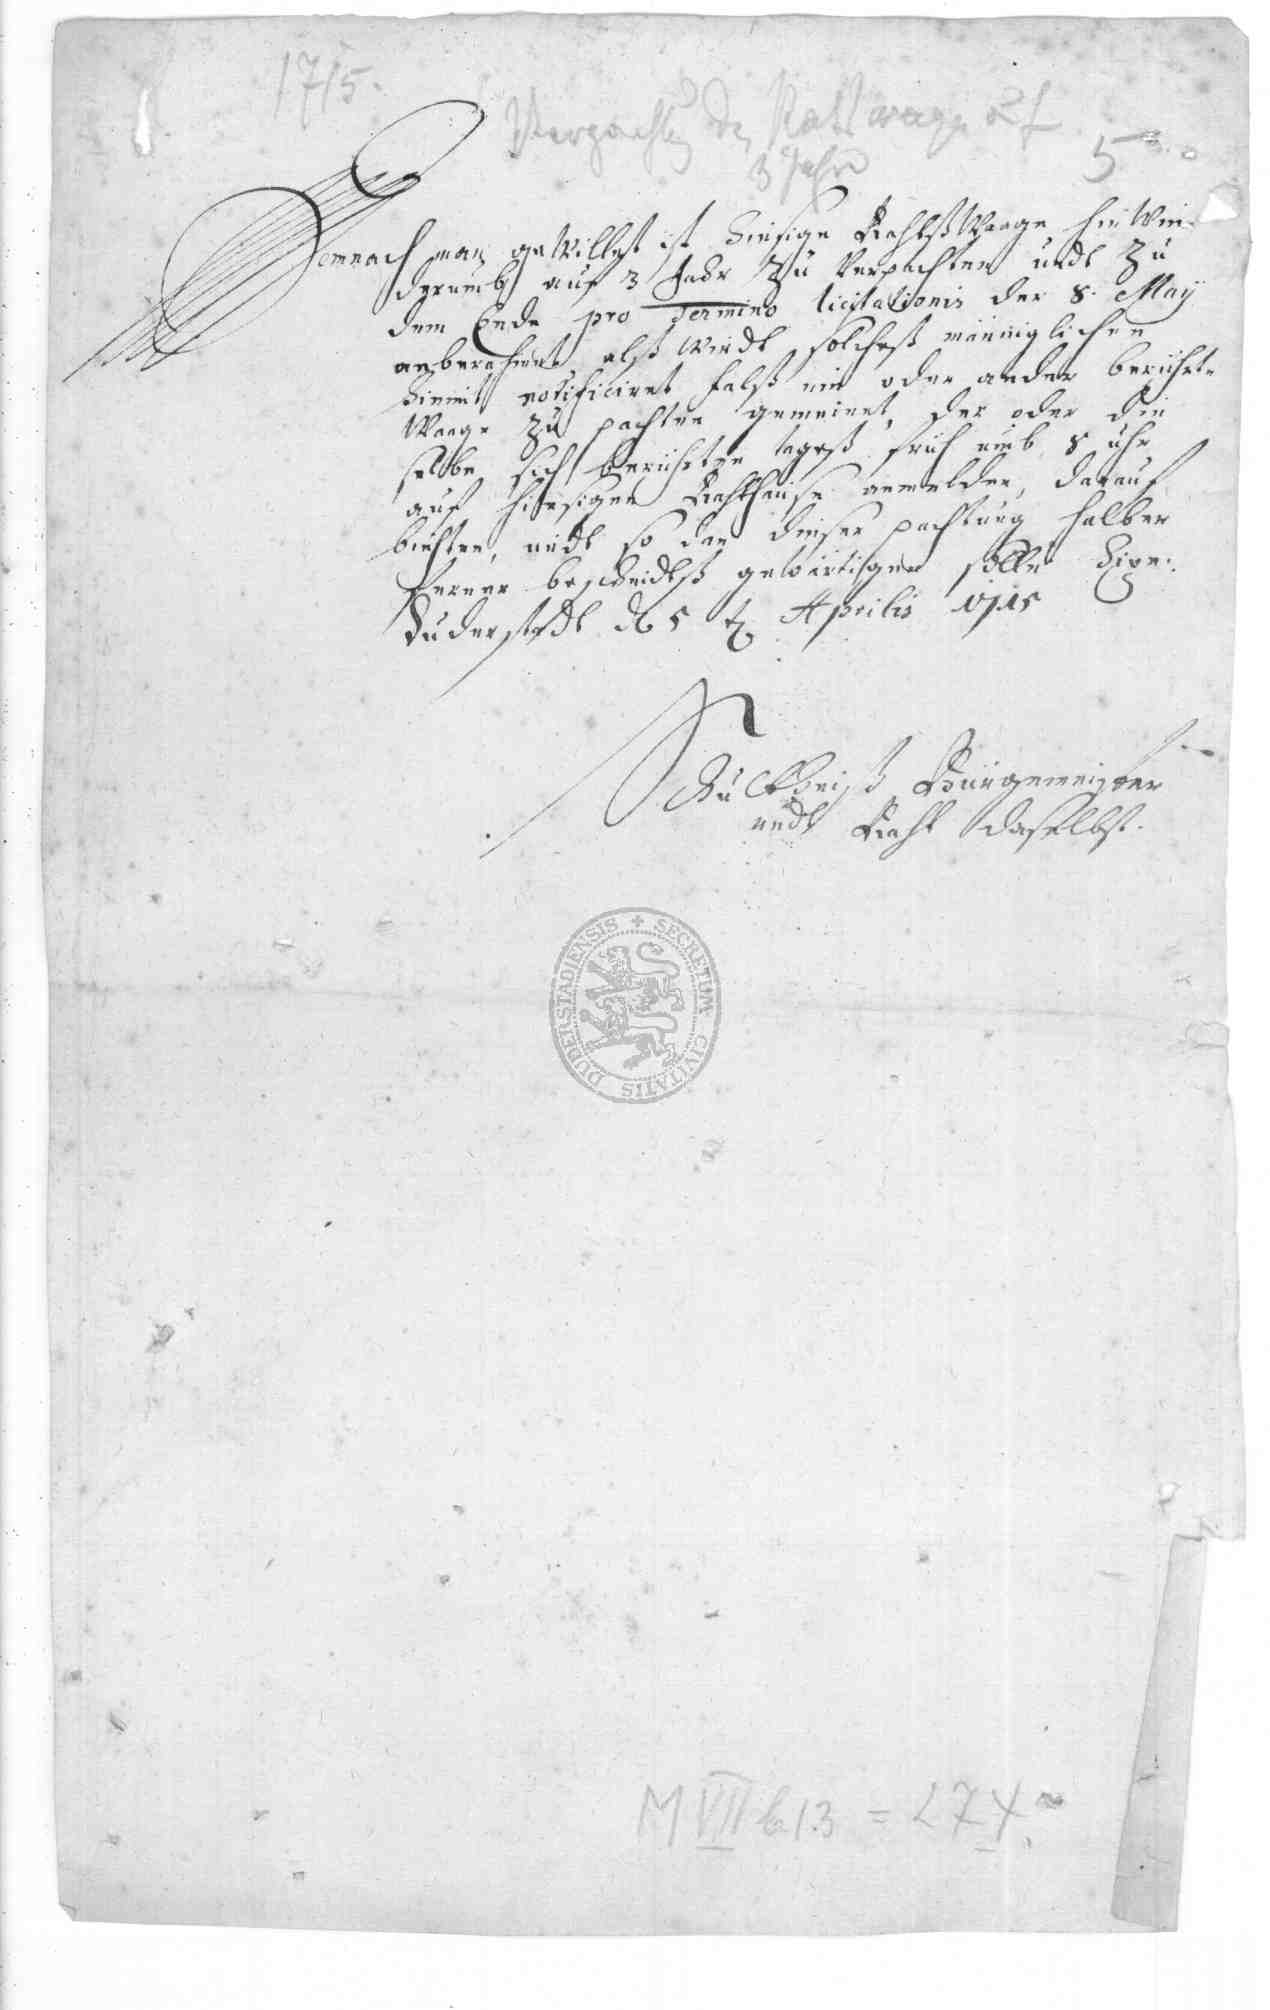 1715.
Verpachtg der Rats wage auf
3 Jahr
5
Demnach man gewillet ist hiesige Rahtß Waage hinwie-
derumb auf 3 Jahr zu verpachten undt zu
dem Ende pro Termino licitationis der 8. May
anberahmet alß wirdt solcheß männiglichen
hiemit notificiret falß ein oder ander berührte
Waage zu pachten gemeinet, der oder die
selbe sich berührten tageß früh umb 8 uhr
auf hiesigen Rahthause anmelden, darauf
biehten, undt so dan dieser pachtung halber
ferner bescheidtß gewärtigen solle
Duderstadt d 5 t Aprilis 1715
Schultheiß Bürgemeister
undt Raht daselbst.
SECRETUM CIVITATIS DUDERSTADIENSIS
M VII b 13 = 274